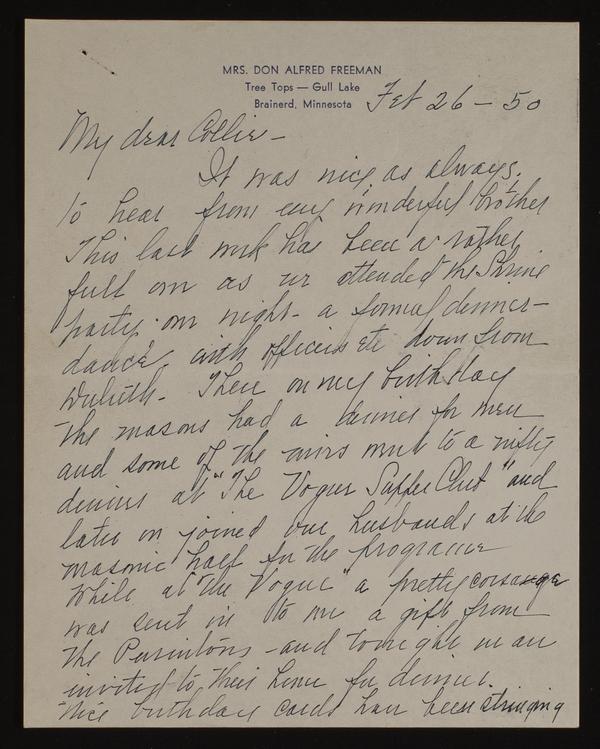 MRS. DON ALFRED FREEMAN
Tree Tops — Gull Lake
Brainerd, Minnesota
Feb 26 - 50
My dear Collie -
It was nice as always,
to hear from my wonderful brother
This last week has been a rather
full one as we attended the Shrine
party one night - a formal dinner -
dance, with officers etc down from
Duluth. Then on my birthday
the masons had a dinner for men
and some of the wives went to a nifty
dinner at "The Vogue Supper Club" and
later on joined our husbands at the
masonic hall for the programe
While at "The Vogue" a pretty corsange
was sent in to me a gift from
the Purintons - and tonight we are
invited to their home for dinner.
Nice birthday cards have been stringing